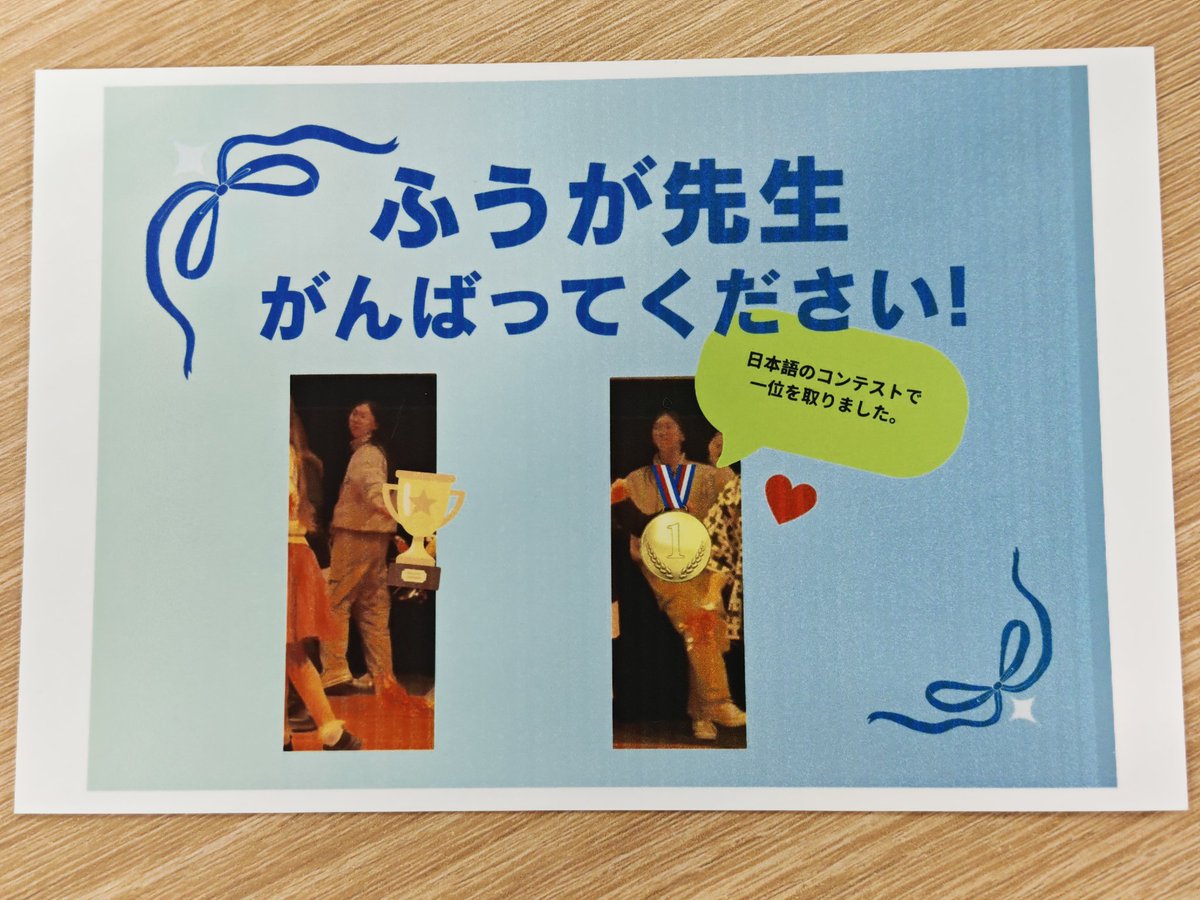 ふうが先生
がんばってください!
日本語のコンテストで
一位を取りました。
1